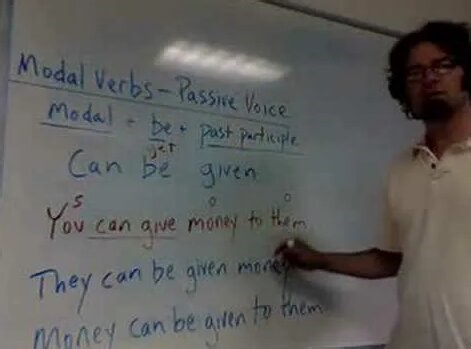 Modal Verbs - Passive Voice
Modal + be + past participle
get
Can be given
S O O
You can give money to them
They can be given money
Money can be given to them